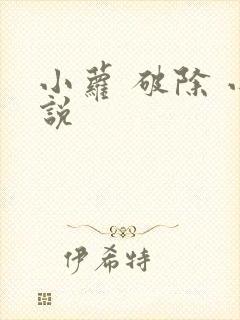 小蘿 破除 小
説
伊希特